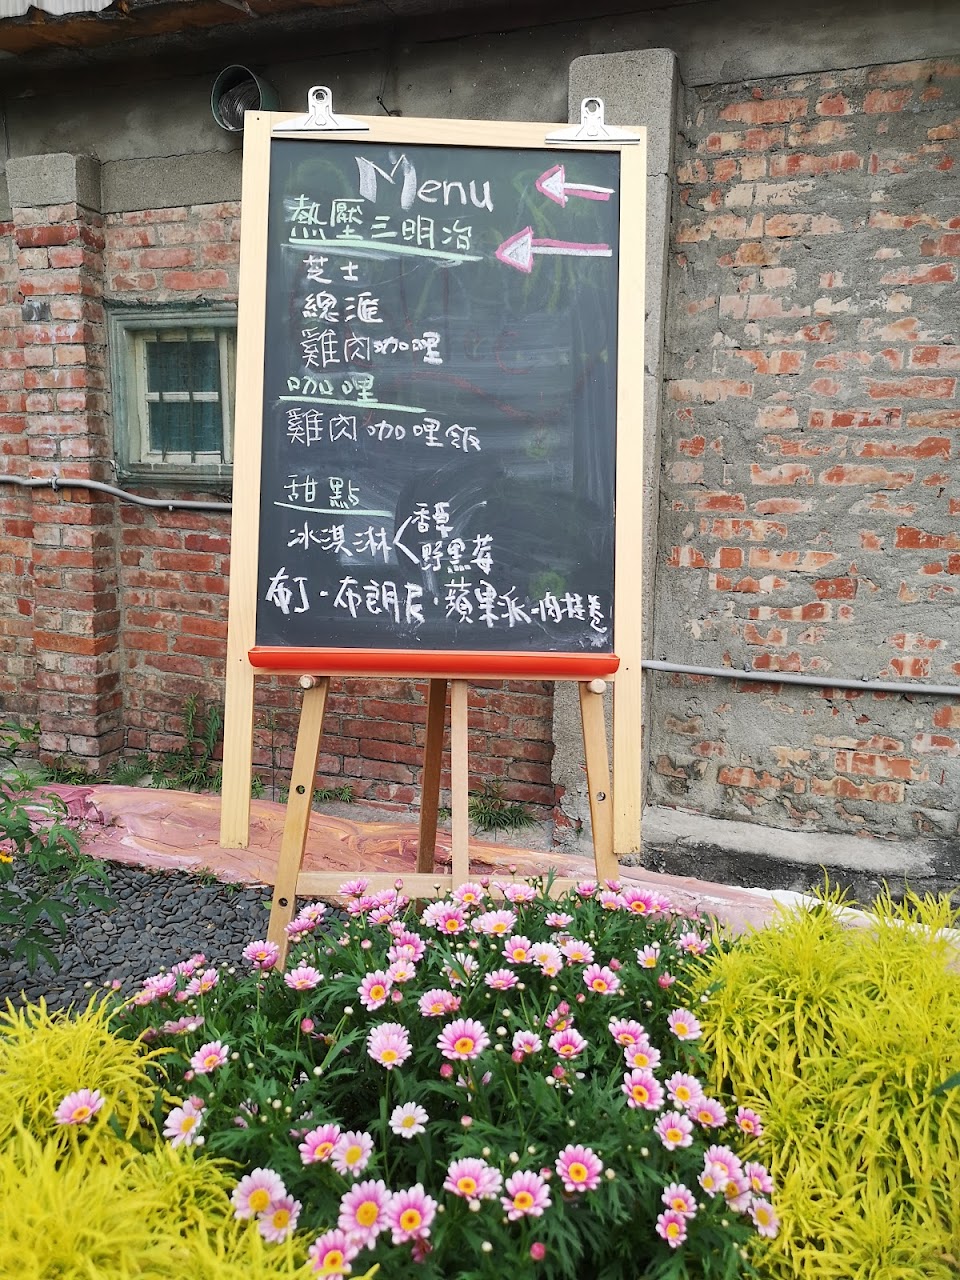 Menu
熱壓三明治
芝士
總滙
雞肉咖哩
咖哩
雞肉咖哩飯
甜點
冰淇淋
香草
野黑莓
布丁·布朗尼·蘋果派·肉桂卷